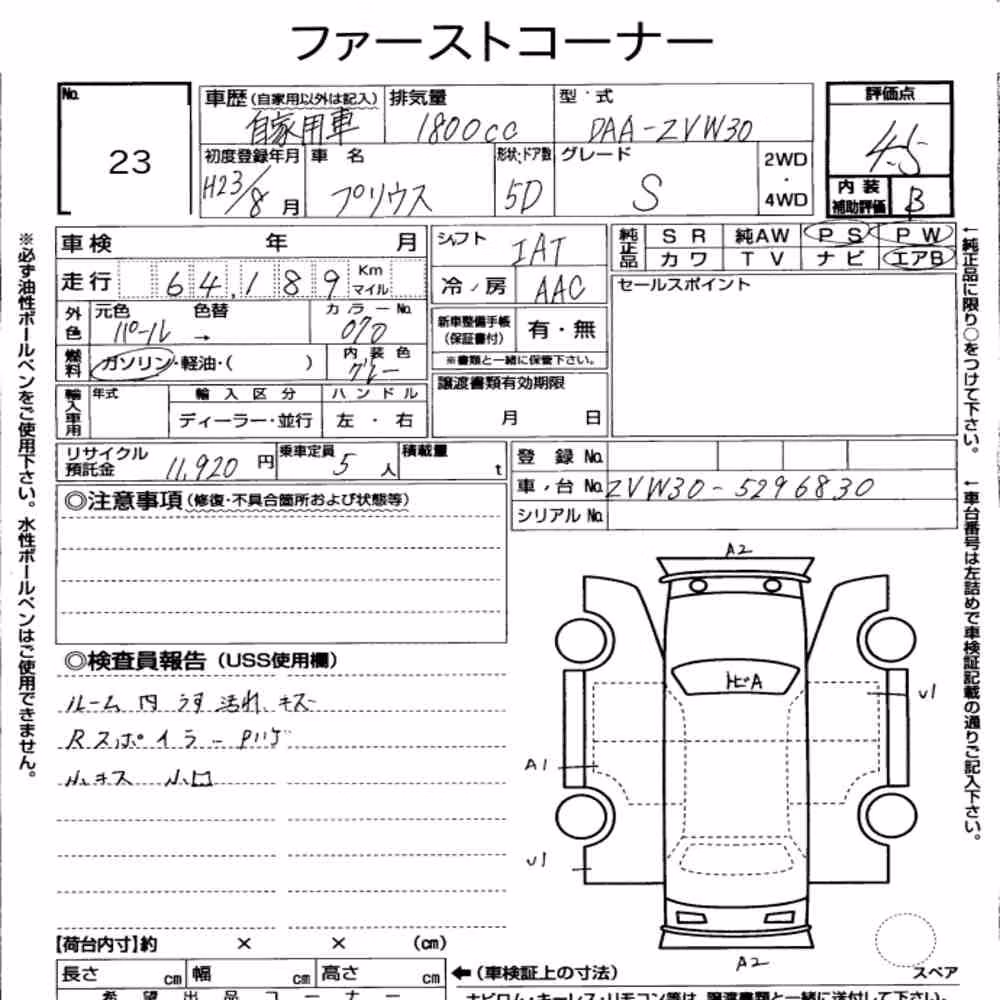 ファーストコーナー
No.
23
車歴(自家用以外は記入)
自家用車
排気量
1800cc
型・式
DAA-ZVW30
評価点
4.5
初度登録年月
H23/8月
車名
プリウス
形状・ドア数
5D
グレード
S
2WD
・
4WD
内装
補助評価
B
車検 年 月
走行 64,189 Km マイル
シフト
IAT
冷/房
AAC
純正品
SR 純AW PS PW
カワ TV ナビ エアB
セールスポイント
外色
元色
パール
色替
→
カラーNo.
070
燃料
ガソリン・軽油・( )
内装色
グレー
新車整備手帳
(保証書付)
有・無
※書類と一緒に保管下さい。
譲渡書類有効期限
月 日
輸入車用
年式
輸入区分
ディーラー・並行
ハンドル
左・右
リサイクル
預託金
11,920円
乗車定員
5人
積載量
t
登録No.
車・台No. ZVW30-5296830
シリアルNo.
◎注意事項(修復・不具合箇所および状態等)
◎検査員報告(USS使用欄)
ルーム内うす汚れ、キズ
Rスポイラー Pハゲ
小キズ 小凹
A2
トビA
U1
A1
U1
A2
スペア
【荷台内寸】約 × × (cm)
長さ cm 幅 cm 高さ cm
←(車検証上の寸法)
希望出品コーナー
ナビロム・キーレス・リモコン等は、譲渡書類と一緒に送付して下さい。
※必ず油性ボールペンをご使用下さい。水性ボールペンはご使用できません。
←純正品に限り○をつけて下さい。
←車台番号は左詰めで車検証記載の通りご記入下さい。